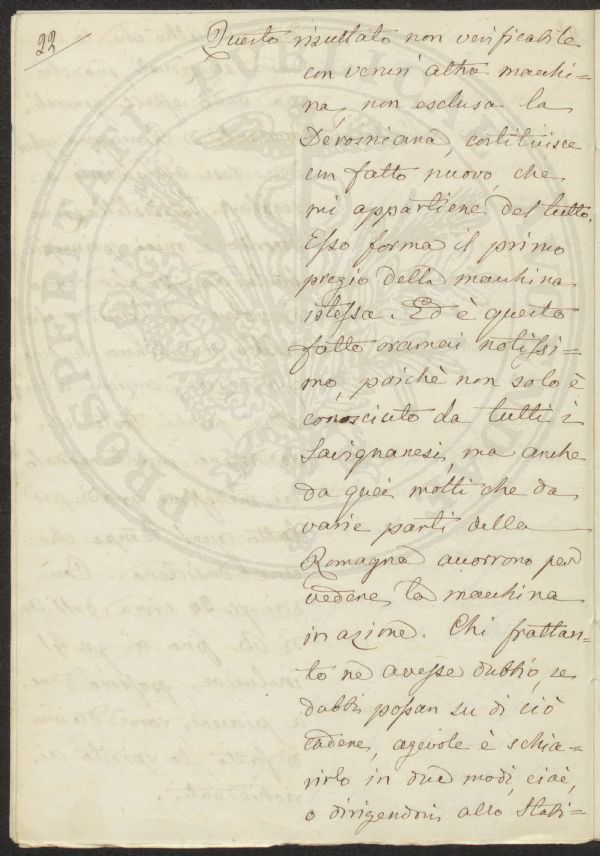 22
Questo risultato non verificabile
con verun' altra macchi=
na, non esclusa la
Derosniana, costituisce
un fatto nuovo, che
mi appartiene del tutto.
Esso forma il primo
pregio della macchina
istessa. Ed è questo
fatto oramai notissi=
mo, poichè non solo è
conosciuto da tutti i
Savignanesi, ma anche
da quei molti che da
varie parti della
Romagna accorrono per
vedere la macchina
in azione. Chi frattan=
to ne avesse dubbio, se
dubbi possan su di ciò
cadere, agevole è schia=
rirlo in due modi, cioè,
o dirigendosi allo Stabi=
PROSPERITATI PUBLICAE